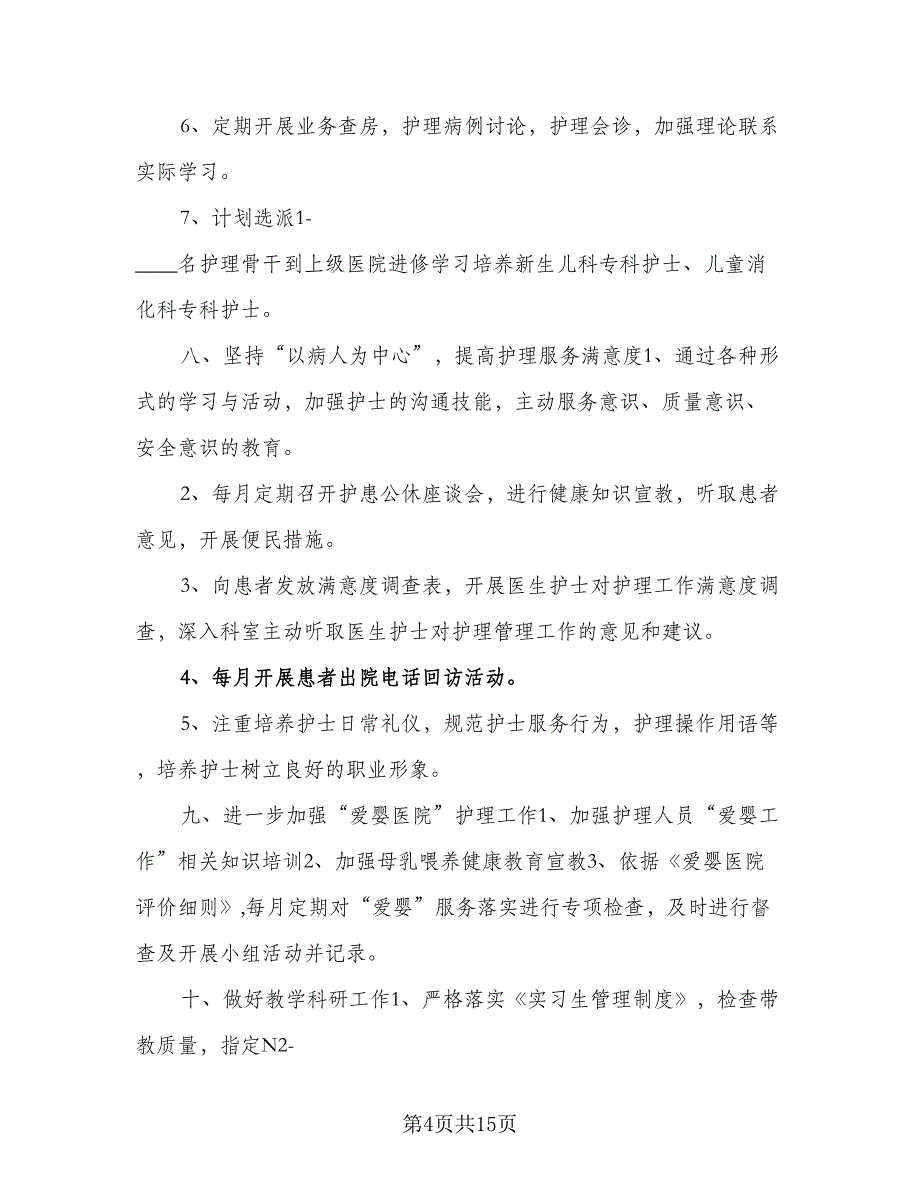 6、定期开展业务查房，护理病例讨论，护理会诊，加强理论联系
实际学习。
7、计划选派1-
____名护理骨干到上级医院进修学习培养新生儿科专科护士、儿童消
化科专科护士。
八、坚持“以病人为中心”，提高护理服务满意度1、通过各种形
式的学习与活动，加强护士的沟通技能，主动服务意识、质量意识、
安全意识的教育。
2、每月定期召开护患公休座谈会，进行健康知识宣教，听取患者
意见，开展便民措施。
3、向患者发放满意度调查表，开展医生护士对护理工作满意度调
查，深入科室主动听取医生护士对护理管理工作的意见和建议。
4、每月开展患者出院电话回访活动。
5、注重培养护士日常礼仪，规范护士服务行为，护理操作用语等
，培养护士树立良好的职业形象。
九、进一步加强“爱婴医院”护理工作1、加强护理人员“爱婴工
作”相关知识培训2、加强母乳喂养健康教育宣教3、依据《爱婴医院
评价细则》,每月定期对“爱婴”服务落实进行专项检查，及时进行督
查及开展小组活动并记录。
十、做好教学科研工作1、严格落实《实习生管理制度》，检查带
教质量，指定N2-
第4页共15页